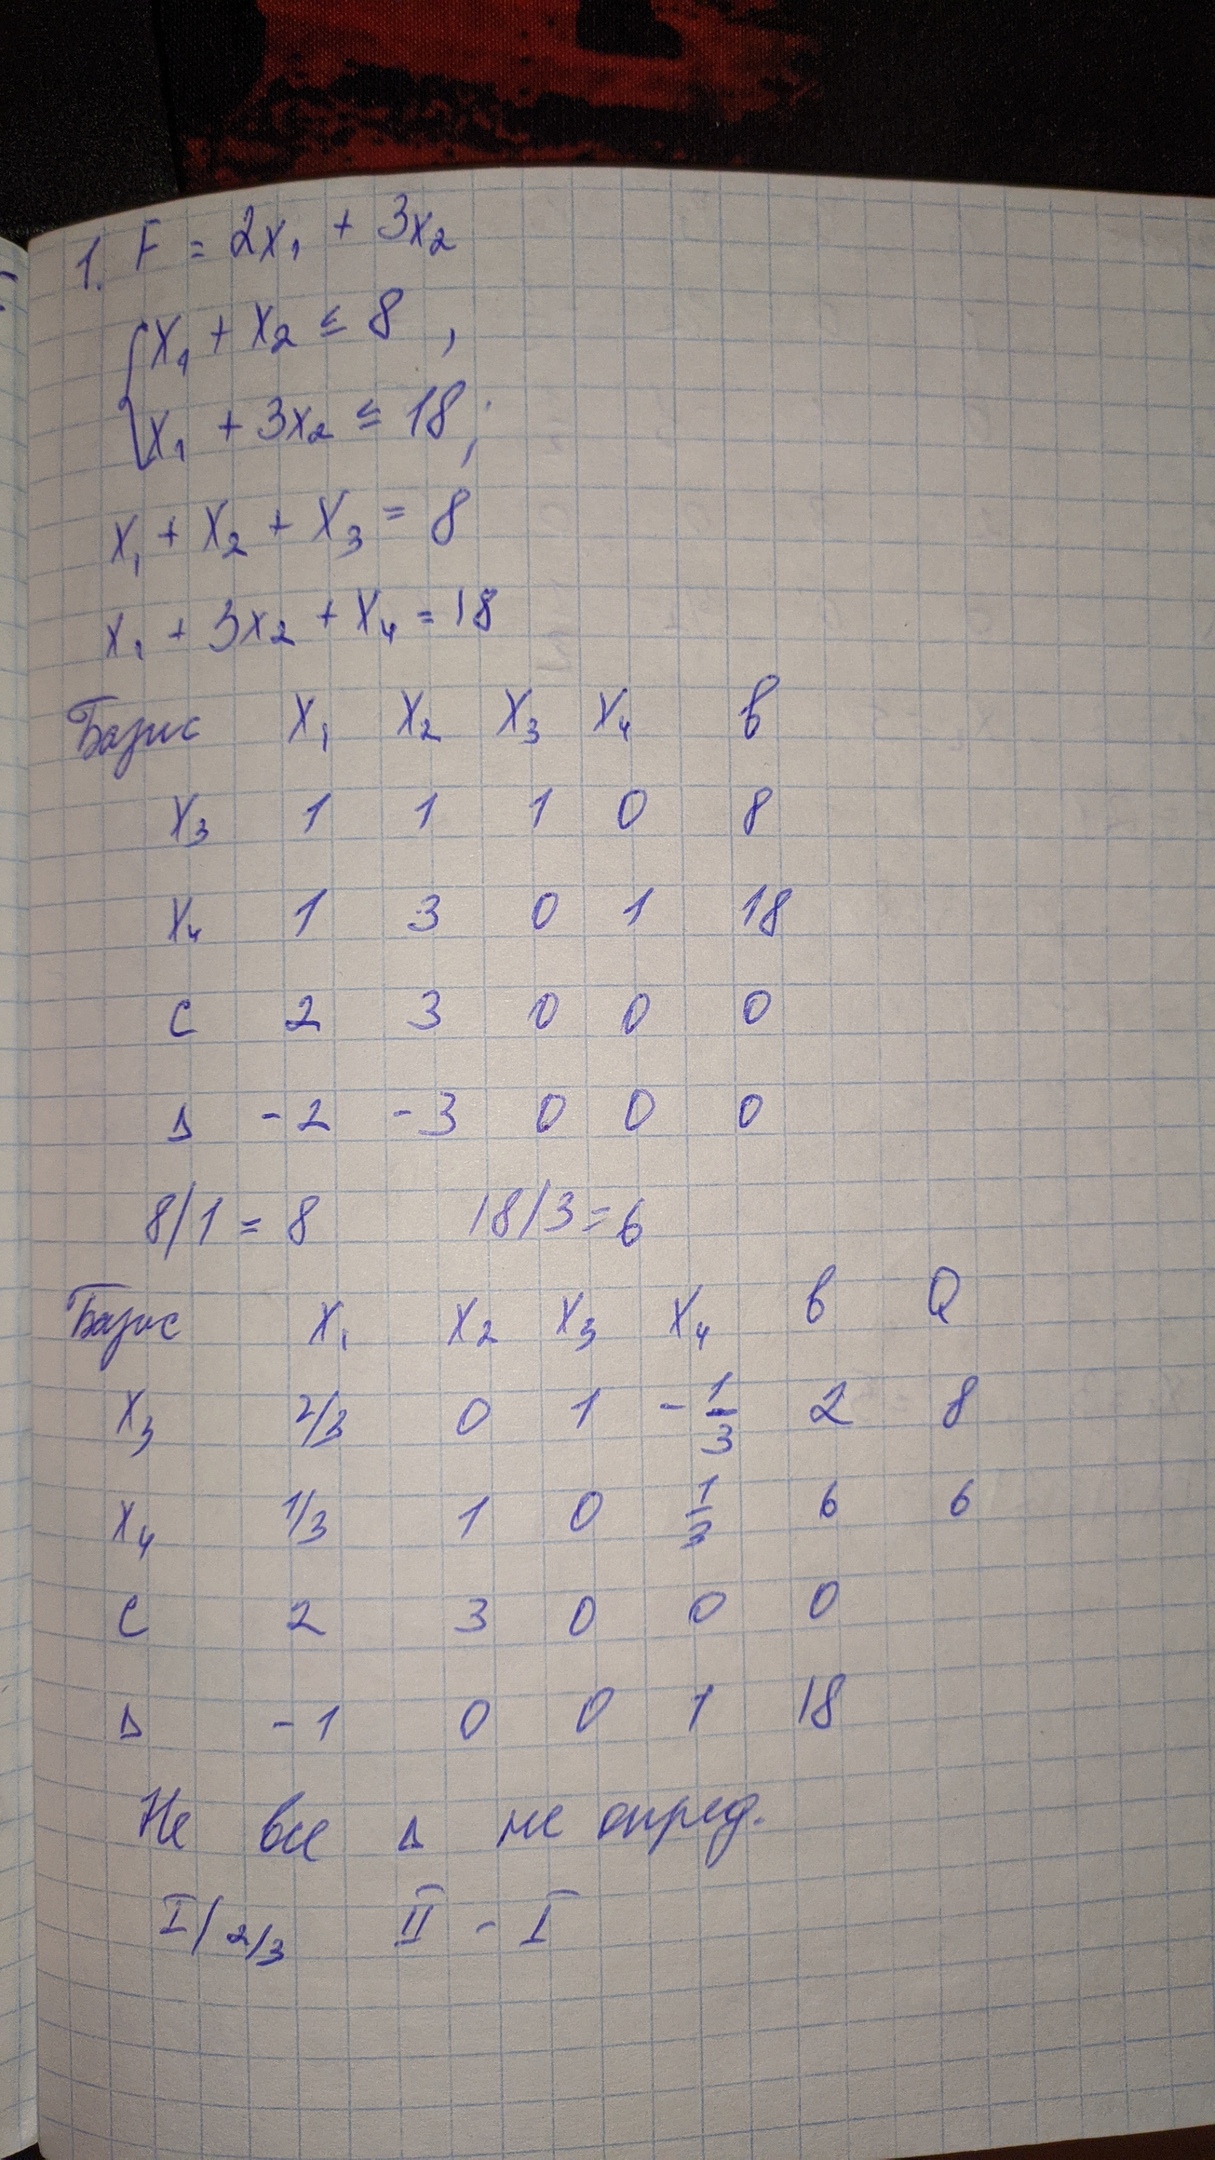 1. F = 2x₁ + 3x₂
{x₁ + x₂ ≤ 8 ,
x₁ + 3x₂ ≤ 18 ;
x₁ + x₂ + x₃ = 8
x₁ + 3x₂ + x₄ = 18
Базис x₁ x₂ x₃ x₄ b
x₃ 1 1 1 0 8
x₄ 1 3 0 1 18
C 2 3 0 0 0
Δ -2 -3 0 0 0
8/1 = 8 18/3 = 6
Базис x₁ x₂ x₃ x₄ b Q
x₃ 2/3 0 1 -1/3 2 8
x₄ 1/3 1 0 1/3 6 6
C 2 3 0 0 0
Δ -1 0 0 1 18
Не все Δ не опред.
I / 2/3 II - I